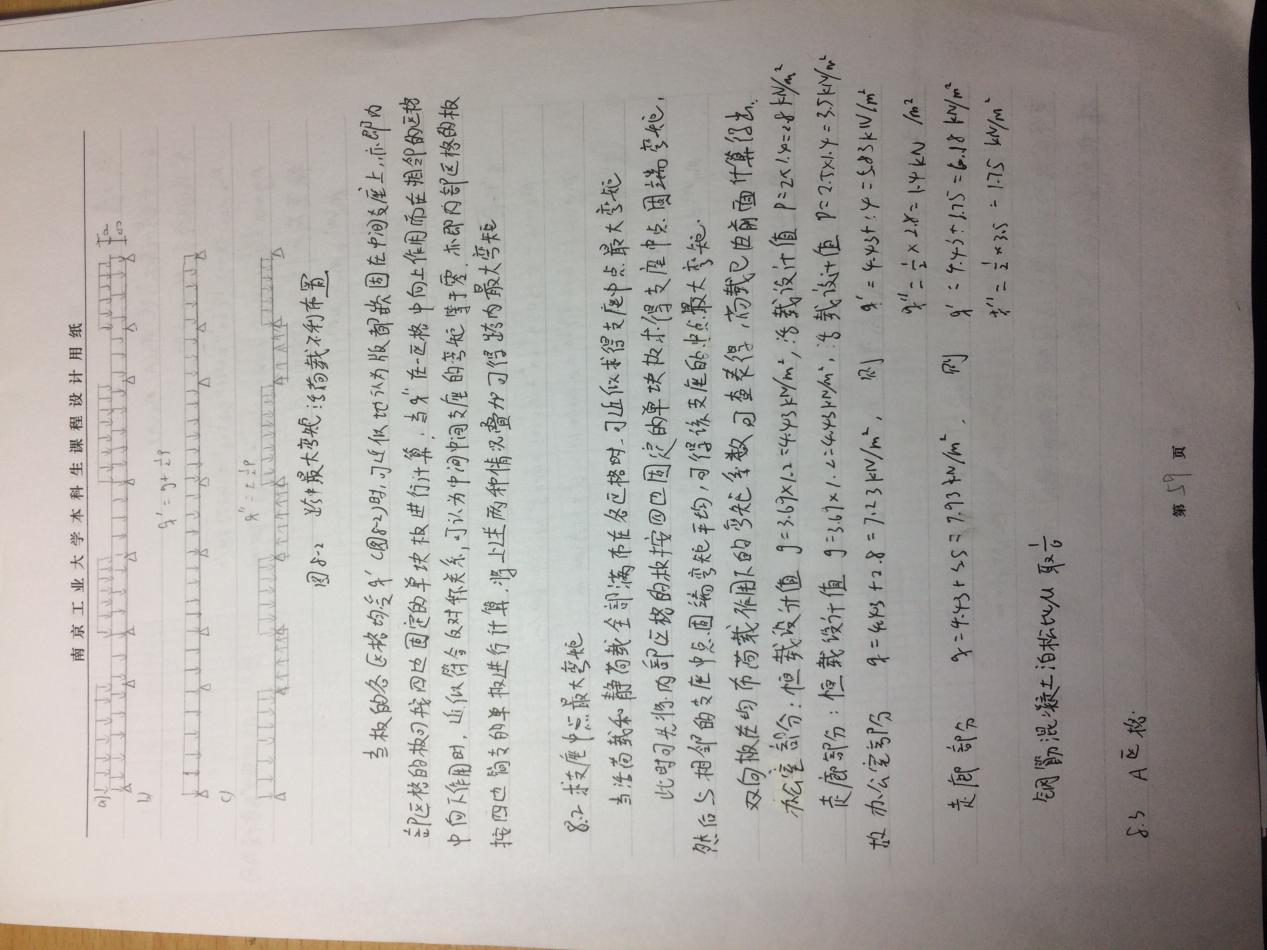 南京工业大学本科生课程设计用纸
a)
b)
q′ = g + ½P
c)
q″ = ±½P
图8-2 跨中最大弯矩活荷载不利布置
当板的各区格均受q′(图8-2)时,可近似地认为板都嵌固在中间支座上,亦即内
部区格的板可按四边固定的单块板进行计算;当q″在一区格中向上作用而在相邻的区格
中向下作用时,近似符合反对称关系,可认为中间中间支座的弯矩等于零,亦即内部区格的板
按四边简支的单板进行计算.将上述两种情况叠加可得跨内最大弯矩
8.2 求支座中点最大弯矩
当活荷载和静荷载全部满布在各区格时,可近似求得支座中点最大弯矩
此时可先将内部区格的板按四边固定的单块板求得支座中点固端弯矩,
然后与相邻的支座中点固端弯矩平均,可得该支座的中点最大弯矩.
双向板在均布荷载作用下的弯矩系数可查表得,荷载已由前面计算得出.
办公室部分:恒载设计值 g=3.69×1.2=4.43kN/m²,活载设计值 P=2×1.4=2.8kN/m²
走廊部分:恒载设计值 g=3.69×1.2=4.43kN/m²,活载设计值 P=2.5×1.4=3.5kN/m²
故办公室部分 q=4.43+2.8=7.23kN/m², 则 q′=4.43+1.4=5.83kN/m²
q″=½×2.8=1.4kN/m²
走廊部分 q=4.43+3.5=7.93kN/m², 则 q′=4.43+1.75=6.18kN/m²
q″=½×3.5=1.75kN/m²
钢筋混凝土泊松比μ取1/6
8.3 A区格
第 59 页